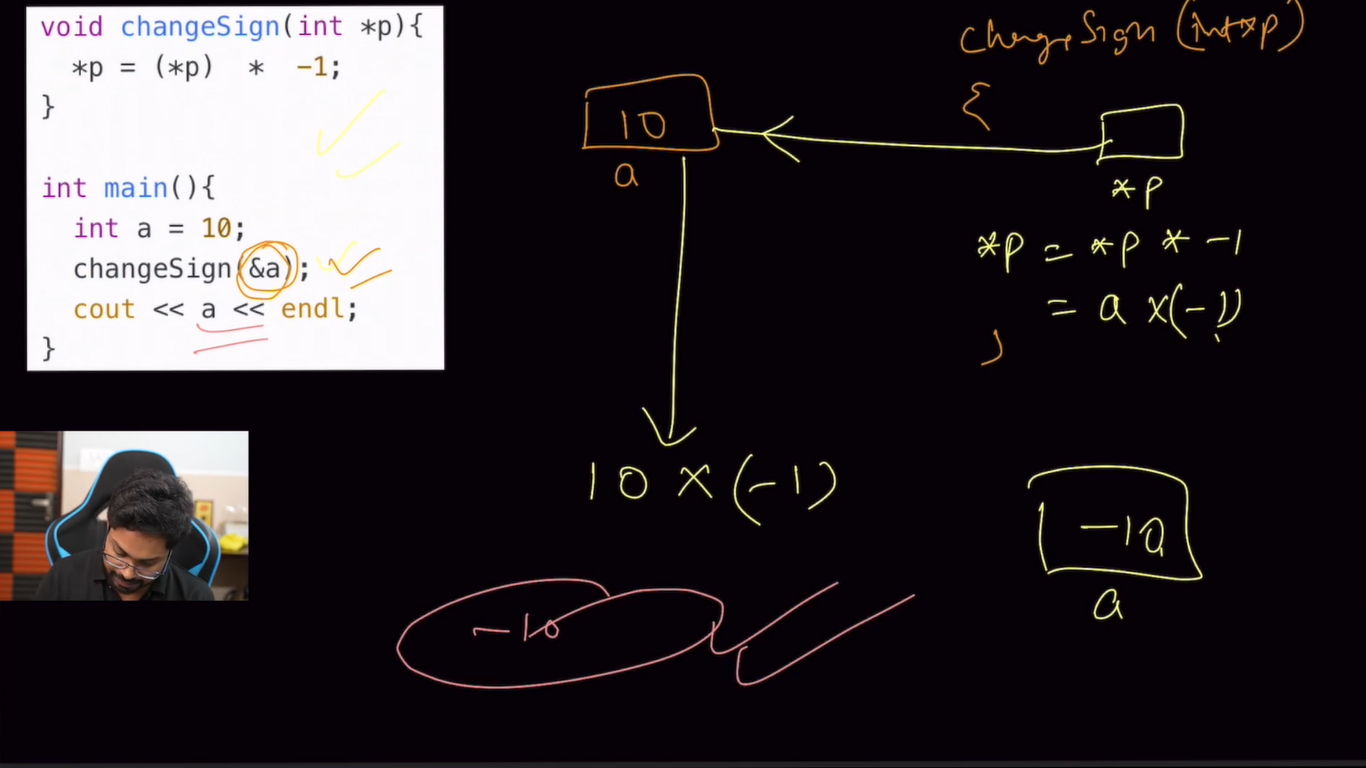 void changeSign(int *p){
*p = (*p) * -1;
}
int main(){
int a = 10;
changeSign(&a);
cout << a << endl;
}
changeSign (int*p)
{
10
a
*p
*p = *p * -1
= a x(-1)
}
10 x (-1)
-10
a
-10